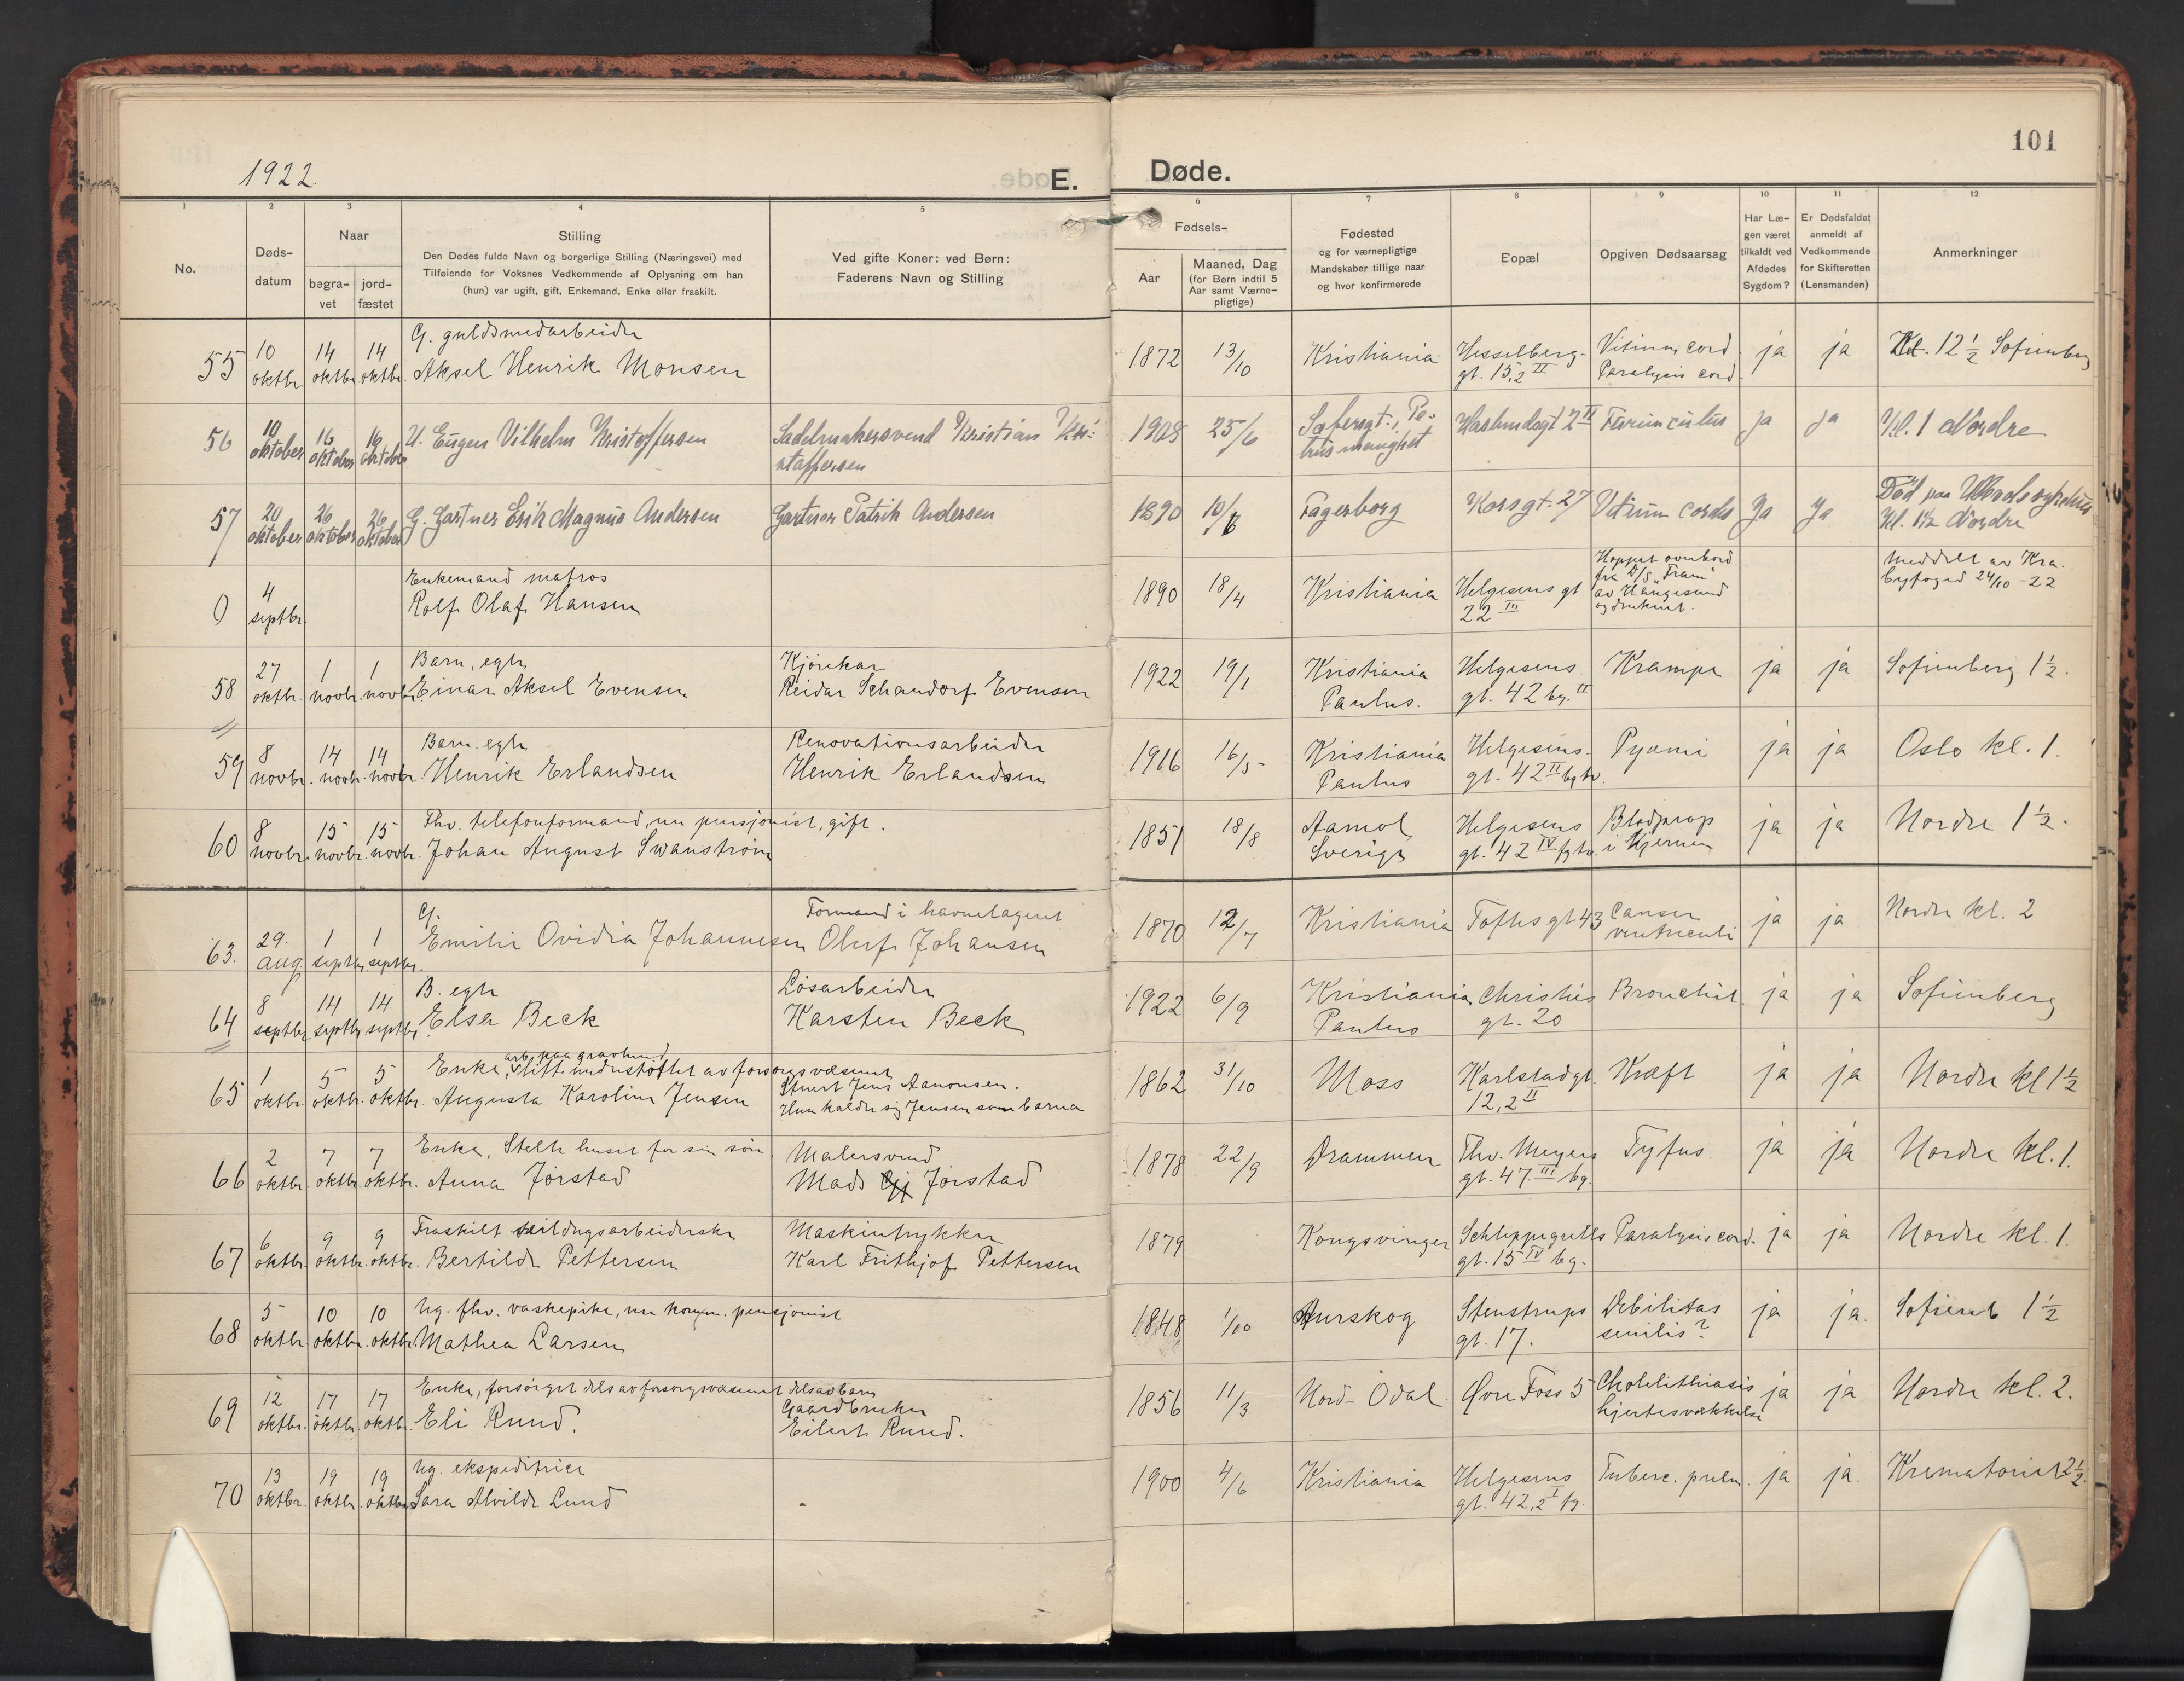 101
1922
E. Døde.
1 2 3 4 5 6 7 8 9 10 11 12
No.
Døds-
datum
Naar
begra-
vet
jord-
fæstet
Stilling
Den Dødes fulde Navn og borgerlige Stilling (Næringsvei) med
Tilføiende for Voksnes Vedkommende af Oplysning om han
(hun) var ugift, gift, Enkemand, Enke eller fraskilt.
Ved gifte Koner: ved Børn:
Faderens Navn og Stilling
Fødsels-
Aar
Maaned, Dag
(for Børn indtil 5
Aar samt Værne-
pligtige)
Fødested
og for værnepligtige
Mandskaber tillige naar
og hvor konfirmerede
Bopæl
Opgiven Dødsaarsag
Har Læ-
gen været
tilkaldt ved
Afdødes
Sygdom?
Er Dødsfaldet
anmeldt af
Vedkommende
for Skifteretten
(Lensmanden)
Anmerkninger
G. guldsmedarbeider
55 10 oktbr. 14 oktbr. 14 oktbr. Aksel Henrik Monsen 1872 13/10 Kristiania Hesselberg- Vitium cord. ja ja Kl. 12 1/2 Sofienberg
gt. 15,2 II Paralysis cord.
56 10 oktober 16 oktober 16 oktober U. Eugen Vilhelm Kristoffersen Sadelmakersvend Kristian Kri- 1908 25/6 Sofiesgt., Pe- Haslundsgt 2 II Furunculus ja ja Kl. 1 Nordre
stoffersen trus menighet
57 20 oktober 26 oktober 26 oktober G. Gartner Erik Magnus Andersen Gartner Patrik Andersen 1890 10/6 Fagerborg Korsgt. 27 Vitium cordis Ja Ja Død paa Ullevaals sykehus
Kl. 1 1/2 Nordre
Enkemand matros
0 4 septbr. Rolf Olaf Hansen 1890 18/4 Kristiania Helgesens gt Hoppet overbord meddelt av Kra.
22 III fra D/S "Fram" byfoged 24/10-22
av Haugesund
og druknet.
Barn, egte Kjørekar
58 27 oktbr. 1 novbr. 1 novbr. Einar Aksel Evensen Reidar Schandorf Evensen 1922 19/1 Kristiania Helgesens Krampe ja ja Sofienberg 1 1/2.
Paulus. gt. 42 bg. II
Barn, egte Renovationsarbeider
59 8 novbr. 14 novbr. 14 novbr. Henrik Erlandsen Henrik Erlandsen 1916 16/5 Kristiania Helgesens- Pyæmi ja ja Oslo kl. 1.
Paulus gt. 42 II bg tv.
Fhv. telefonformand, nu pensjonist, gift.
60 8 novbr. 15 novbr. 15 novbr. Johan August Swanstrøm 1851 18/8 Aamol Helgesens Blodprop ja ja Nordre 1 1/2.
Sverige gt. 42 IV fg tv. i Hjernen
G. Formand i havnelageret
63. 29. aug. 1 septbr. 1 septbr. Emilie Ovidia Johannesen Oluf Johansen 1870 12/7 Kristiania Toftesgt 43 Canser ja ja Nordre kl. 2
ventriculi
B. egte Løsarbeider
64 8 septbr. 14 septbr. 14 septbr. Elsa Beck Karsten Beck 1922 6/9 Kristiania Christies Bronchit. ja ja Sofienberg
Paulus gt. 20
arb. paa gravlund
Enke, litt understøttet av forsorgsvæsenet
65 1 oktbr. 5 oktbr. 5 oktbr. Augusta Karoline Jensen Stuert Jens Aanonsen. 1862 31/10 Moss Karlstadgt. Kræft ja ja Nordre kl 1 1/2
Hun kaldte sig Jensen som barna 12,2 II
Enke, Stelte huset for sin søn Malersvend
66 2 oktbr. 7 oktbr. 7 oktbr. Anna Jørstad Mads Jørstad 1878 22/9 Drammen Thv. Meyers Tyfus. ja ja Nordre kl. 1.
gt. 47 III bg.
Fraskilt seildugsarbeiderske Maskintrykker
67 6 oktbr. 9 oktbr. 9 oktbr. Bertilde Pettersen Karl Frithjof Pettersen 1879 Kongsvinger Schleppegrells Paralysis cord. ja ja Nordre kl. 1.
gt. 15 IV bg.
Ug. fhv. vaskepike, nu komm. pensjonist
68 5 oktbr. 10 oktbr. 10 oktbr. Mathea Larsen 1848 1/10 Aurskog Stenstrups Debilitas ja ja. Sofienb 1 1/2
gt. 17. senilis?
Enke, forsørget dels av forsorgsvæsenet dels av barn
Gaardbruker
69 12 oktbr. 17 oktbr. 17 oktb. Eli Ruud. Eilert Ruud. 1856 11/3 Nord-Odal Øvre Foss 5 Cholelithiasis ja ja Nordre kl. 2.
hjertesvækkelse
Ug. ekspeditrice
70 13 oktbr. 19 oktbr. 19 oktbr. Sara Alvilde Lund 1900 4/6 Kristiania Helgesens Tuberc. pulm. ja ja. Krematoriet 2 1/2.
gt. 42,2 I fg.